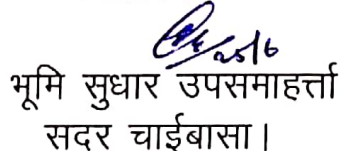 25/6
भूमि सुधार उपसमाहर्त्ता
सदर चाईबासा।